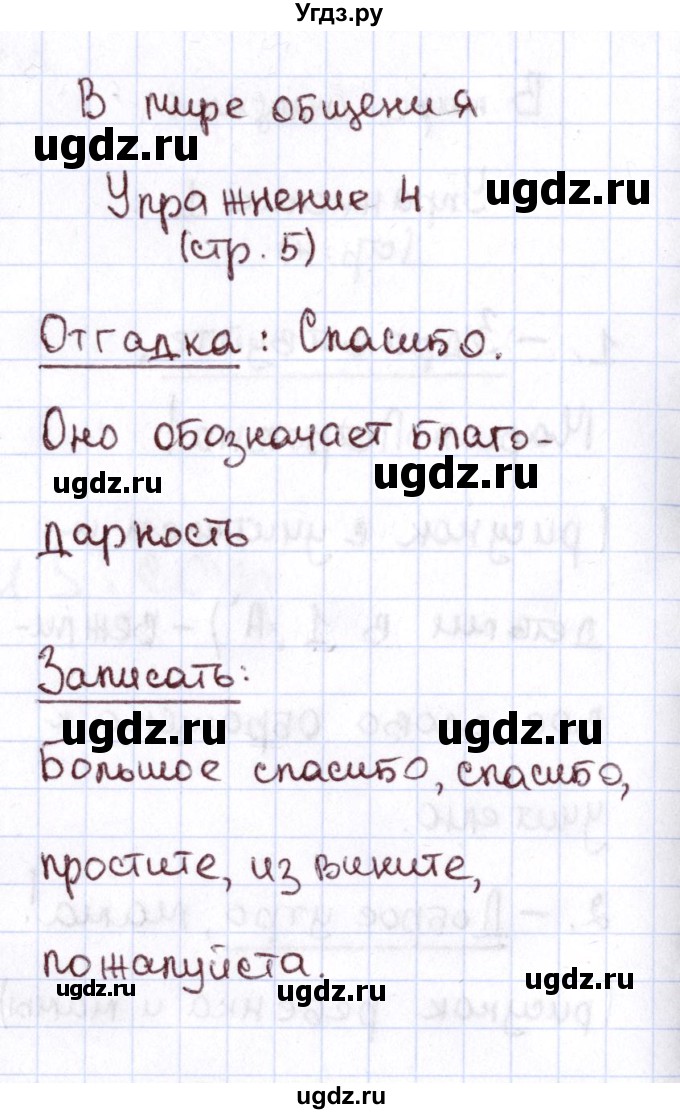 Угдз.ру
В мире общения
ugdz.ru
Упражнение 4
ugdz.ru
(стр. 5)
Отгадка: Спасибо.
Оно обозначает благо-
ugdz.ru ugdz.ru
дарность
Записать:
ugdz.ru ugdz.ru
Большое спасибо, спасибо,
простите, извините,
пожалуйста.
ugdz.ru ugdz.ru ugdz.ru
Угдз.ру